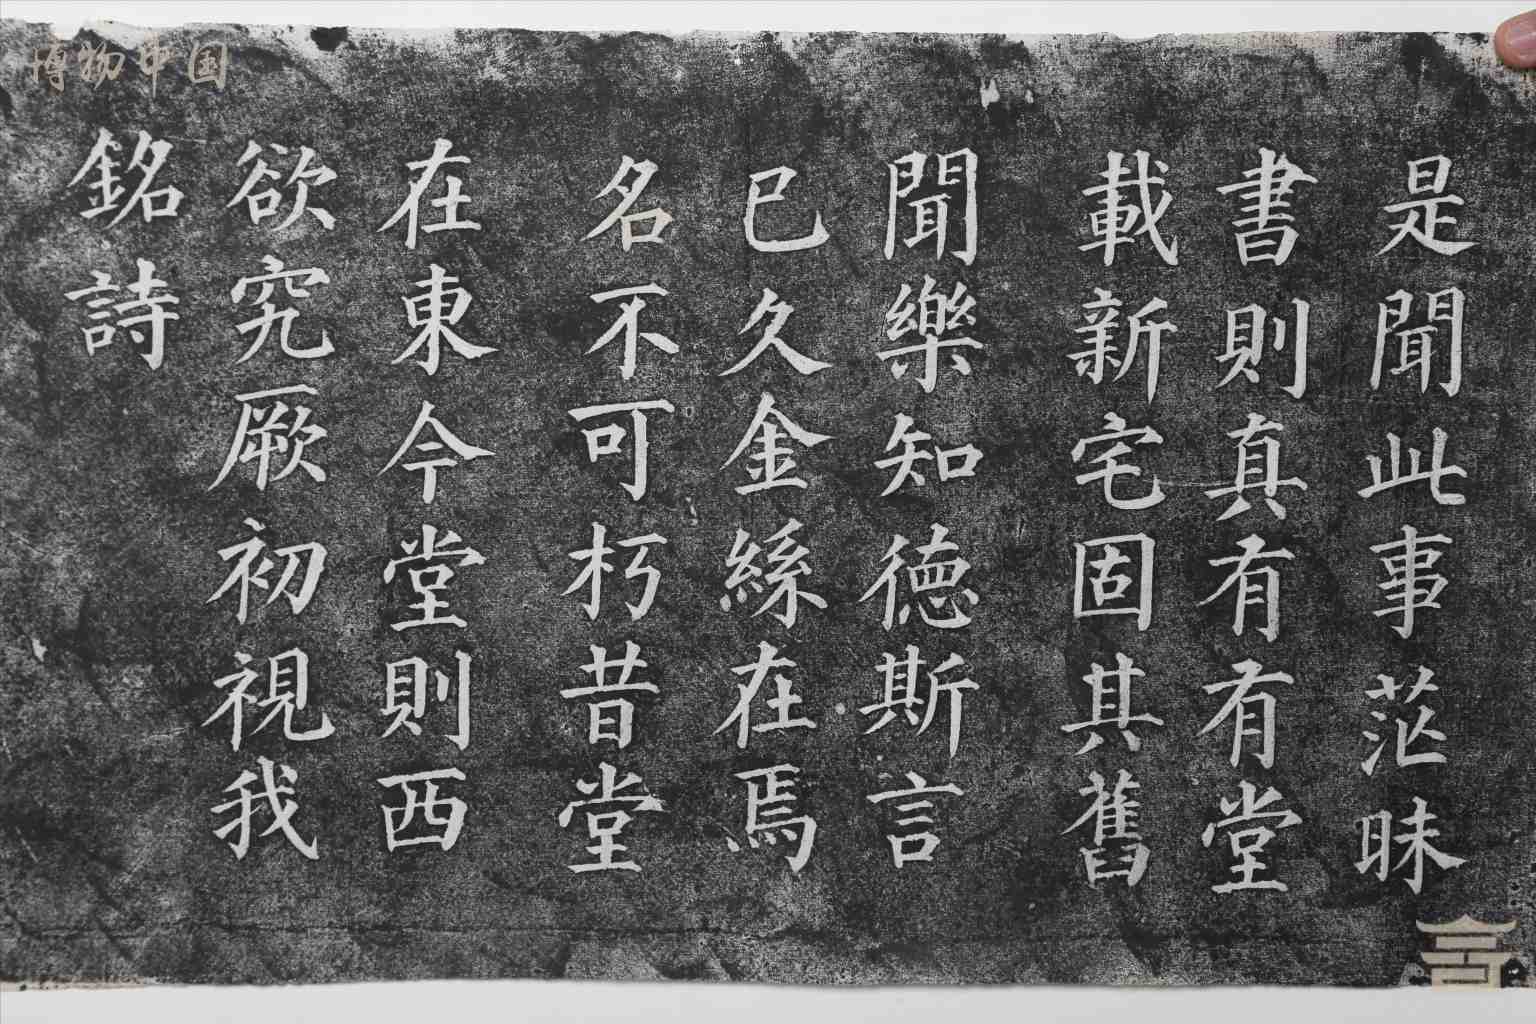 是聞此事茫昧
書則真有有堂
載新宅固其舊
聞樂知德斯言
已久金絲在焉
名不可朽昔堂
在東今堂則西
欲究厥初視我
銘詩
博物中国